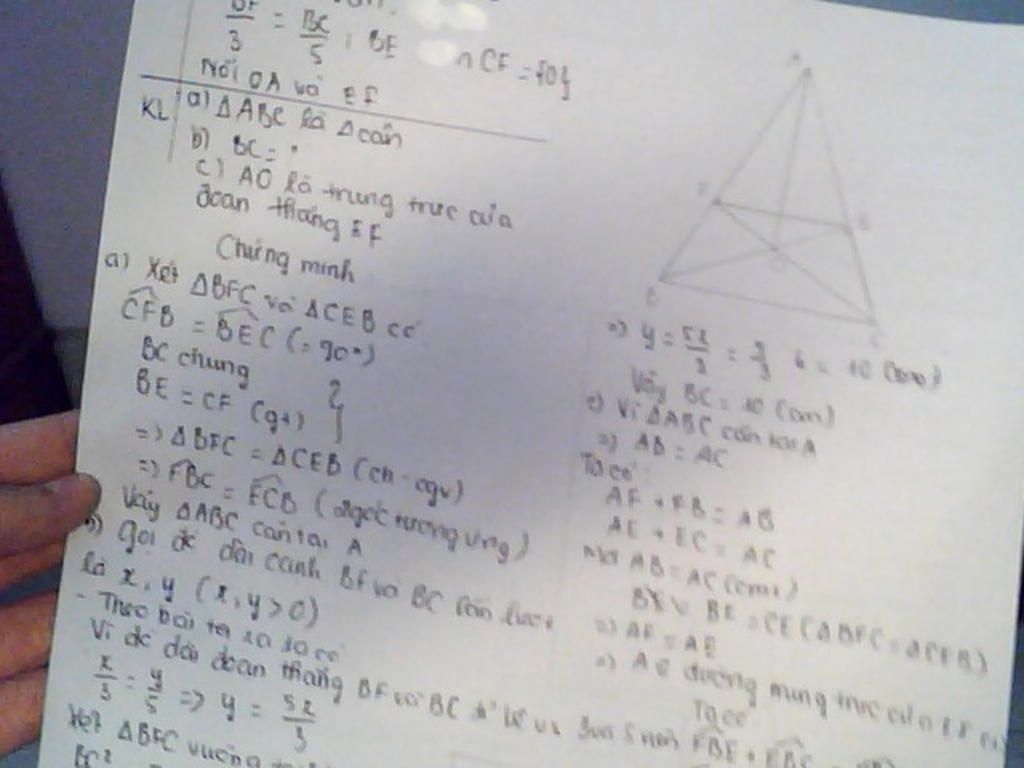 BF/3 = BC/5 ; BE CF =
Nối OA và EF
KL a) ΔABC là Δ cân
b) BC = ?
c) AO là trung trực của
đoạn thẳng EF
Chứng minh
a) Xét ΔBFC và ΔCEB có
CFB = BEC (= 90°)
BC chung
BE = CF (gt)
=> ΔBFC = ΔCEB (ch - cgv)
=> FBC = ECB (2 góc tương ứng)
Vậy ΔABC cân tại A
b) Gọi độ dài cạnh BF và BC lần lượt
là x, y (x, y > 0)
- Theo bài ra ta có
Vì độ dài đoạn thẳng BF và BC tỉ lệ vs 3 và 5 nên
x/3 = y/5 => y = 5x/3
Xét ΔBFC vuông
BC²
A
F
E
B
C
=> y = 5x/3 = 6 = 10 (cm)
Vậy BC = 10 (cm)
c) Vì ΔABC cân tại A
=> AB = AC
Ta có:
AF + FB = AB
AE + EC = AC
Mà AB = AC (cmt)
= CE (ΔBFC = ΔCEB)
=> AF = AE
=> đường trung trực của
Ta có
FBE + EBC